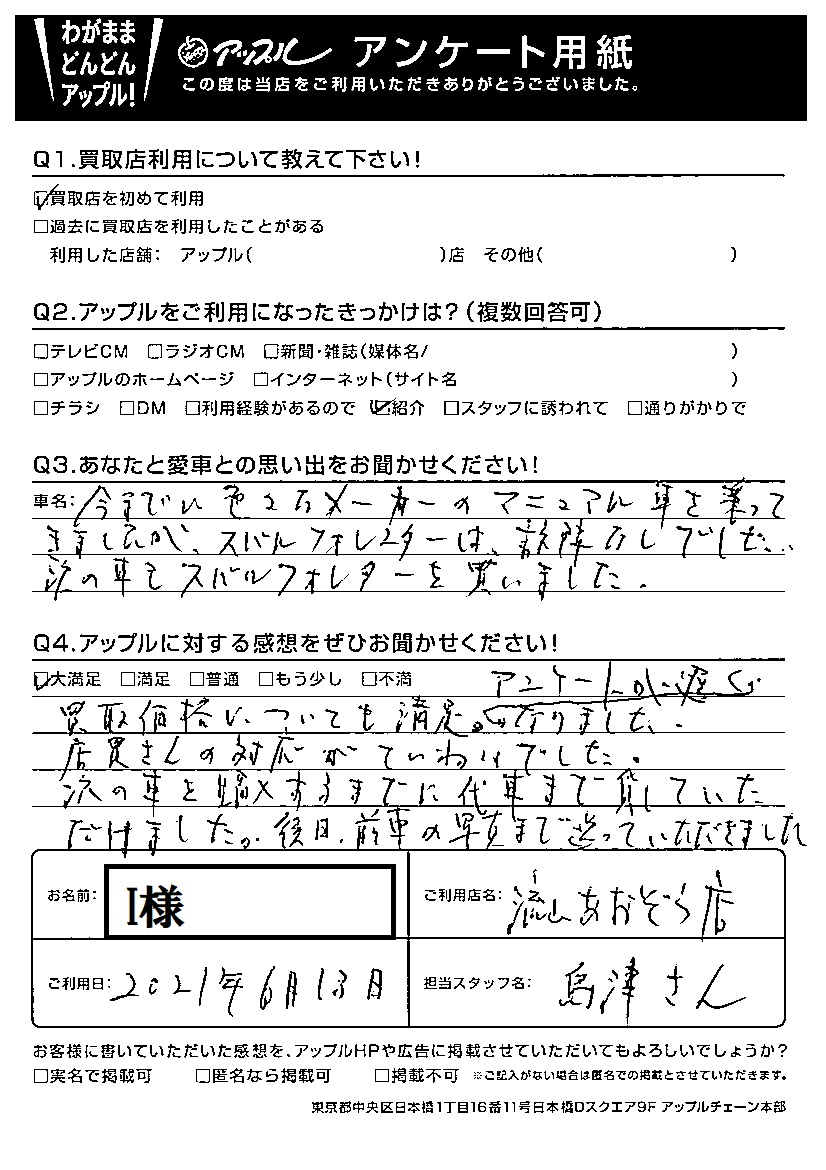 わがまま
どんどん
アップル!
アップル アンケート用紙
この度は当店をご利用いただきありがとうございました。
Q1.買取店利用について教えて下さい!
☑買取店を初めて利用
□過去に買取店を利用したことがある
利用した店舗: アップル( )店 その他( )
Q2.アップルをご利用になったきっかけは?(複数回答可)
□テレビCM □ラジオCM □新聞・雑誌(媒体名/ )
□アップルのホームページ □インターネット(サイト名 )
□チラシ □DM □利用経験があるので ☑紹介 □スタッフに誘われて □通りがかりで
Q3.あなたと愛車との思い出をお聞かせください!
車名: 今までい色々なメーカーのマニュアル車を乗って
きましたが、スバルフォレスターは、故障なしでした。
次の車もスバルフォレスターを買いました。
Q4.アップルに対する感想をぜひお聞かせください!
☑大満足 □満足 □普通 □もう少し □不満 アンケートが遅く
買取価格についても満足。なりました。
店員さんの対応がていねいでした。
次の車を購入するまでに代車まで貸していた
だけました。後日、前車の写真まで送っていただきました
お名前: I様
ご利用店名: 流山あおぞら店
ご利用日: 2021年6月13日
担当スタッフ名: 島津さん
お客様に書いていただいた感想を、アップルHPや広告に掲載させていただいてもよろしいでしょうか?
□実名で掲載可 □匿名なら掲載可 □掲載不可 ※ご記入がない場合は匿名での掲載とさせていただきます。
東京都中央区日本橋1丁目16番11号日本橋Dスクエア9F アップルチェーン本部